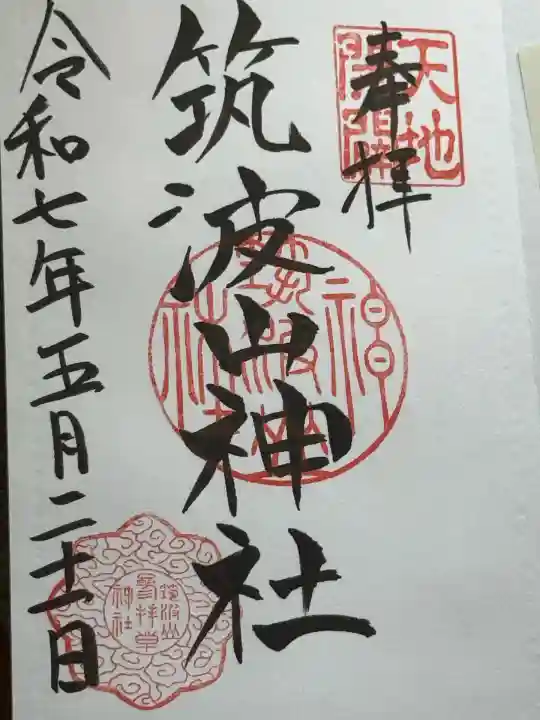 奉拝
天地
開闢
筑波山神社
筑波山
神社
令和七年五月二十一日
筑波山
参拝章
神社